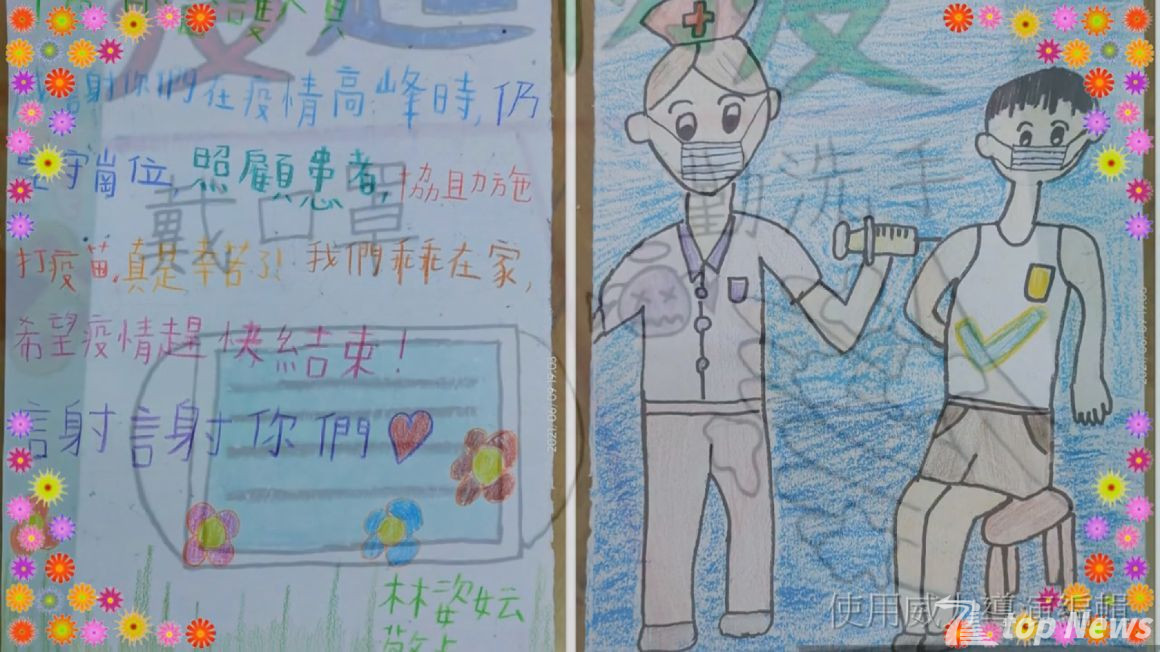 護人員
感謝你們在疫情高峰時,仍
堅守崗位,照顧患者,協助施
打疫苗,真是辛苦了!我們乖乖在家,
希望疫情趕快結束!
謝謝你們
林姿妘
戴口罩
疫
勤洗手
2021/06/09 19:03
使用威力導演編輯
top News